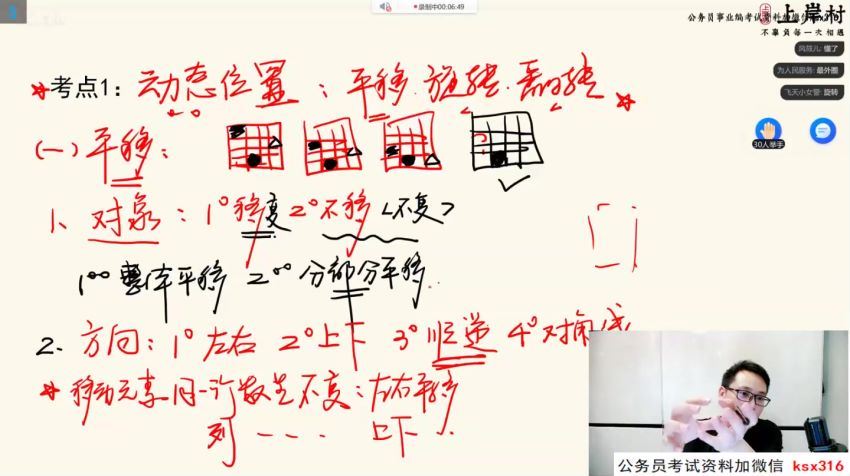 录制中00:06:49
公务员事业编考试资料加微信ksx316
上岸村
不辜负每一次相遇
凤筱儿: 懂了
为人民服务: 最外圈
飞天小女警: 旋转
30人举手
*考点1: 动态位置: 平移.旋转.翻转*
(一)平移:
1、对象: 1°移变 2°不移<不变>
1°°整体平移 2°°分部分平移..
2、方向: 1°左右 2°上下 3°顺逆 4°对角线
*移动元素同一行数量不变: 左右平移
列 .... 上下..
公务员考试资料加微信 ksx316